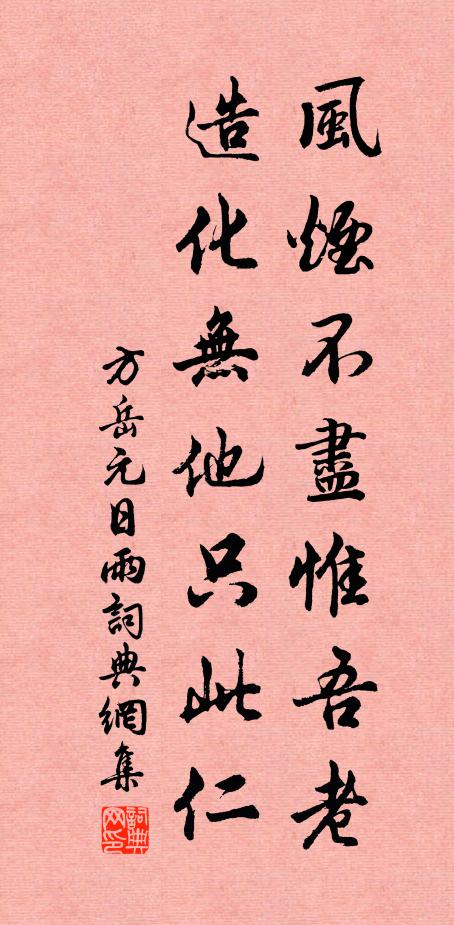 風煙不盡惟吾老
造化無他只此仁
方岳元日雨詞典網集
詞典網印